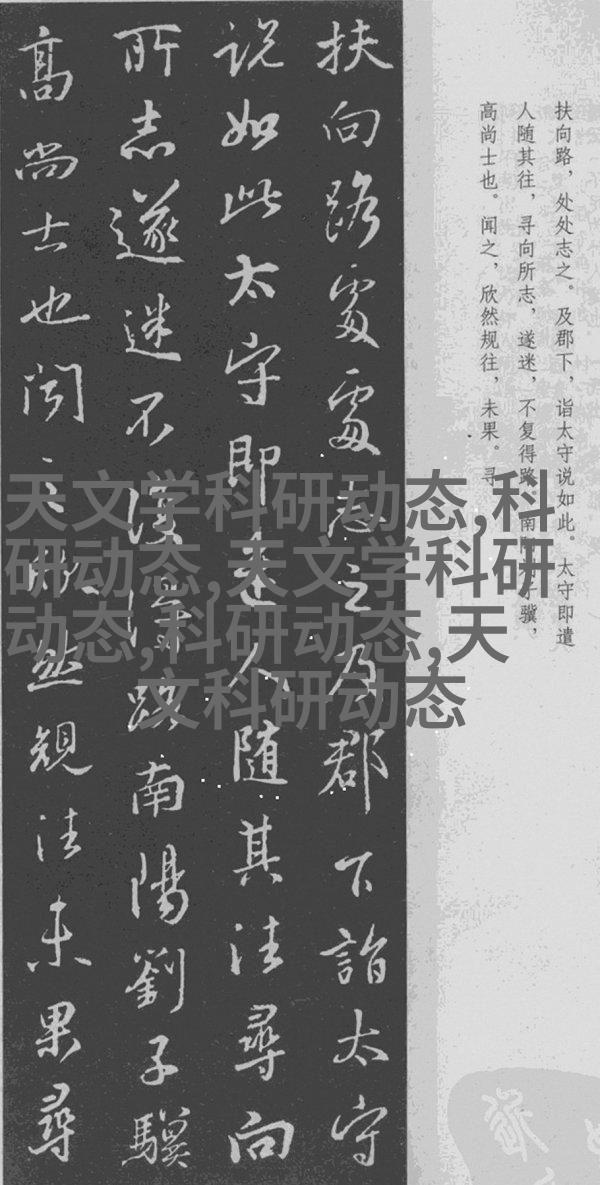 扶向路，处处志之。及郡下，诣太守说如此。太守即遣
人随其往，寻向所志，遂迷，不复得路。南阳刘子骥，
高尚士也。闻之，欣然规往，未果。寻
扶向路處處志之及郡下詣太守
説如此太守即遣人随其往尋向
所志遂迷不復得路南陽劉子驥
高尚士也聞之欣然規往未果尋
天文学科研动态,科
研动态,天文学科研
动态,科研动态,天
文科研动态